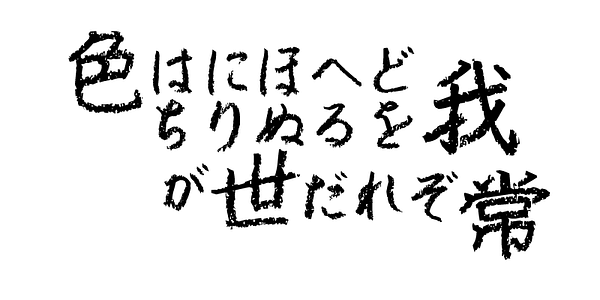 色はにほへど
ちりぬるを我
が世だれぞ常